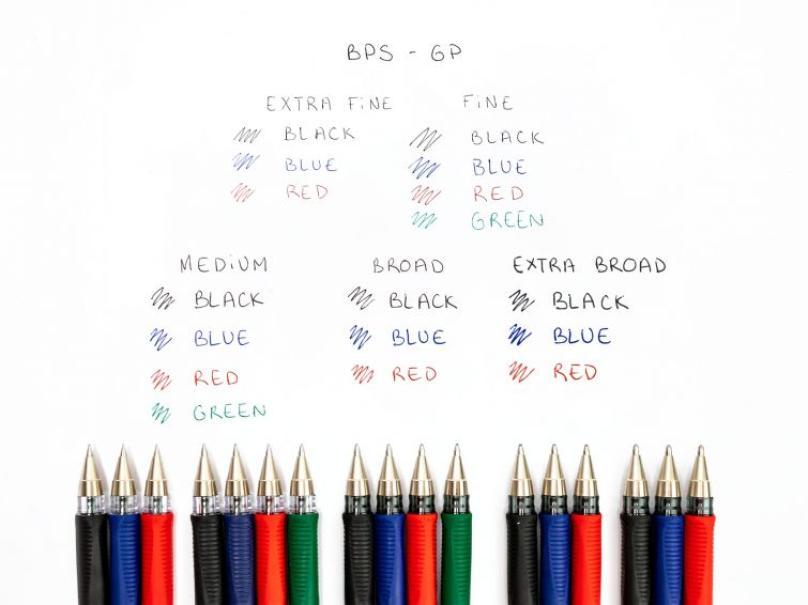 BPS - GP
EXTRA FiNE
BLACK
BLUE
RED
FiNE
BLACK
BLUE
RED
GREEN
MEDiUM
BLACK
BLUE
RED
GREEN
BROAD
BLACK
BLUE
RED
EXTRA BROAD
BLACK
BLUE
RED